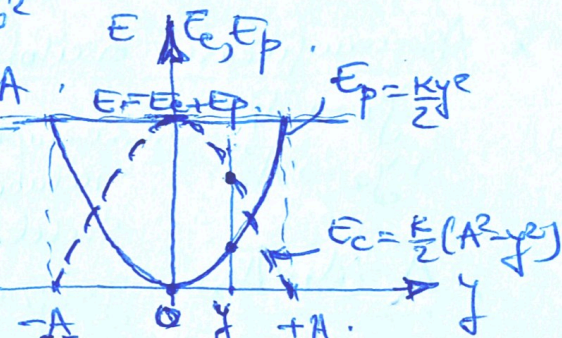 E Ec, Ep.
A
E = Ec + Ep.
Ep = Ky²/2
Ec = K/2 (A² - y²)
-A O y +A. y